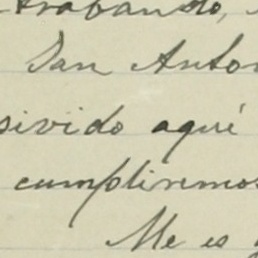 trabando,
San Anton
sivido aquí
cumpliremos
Me es g